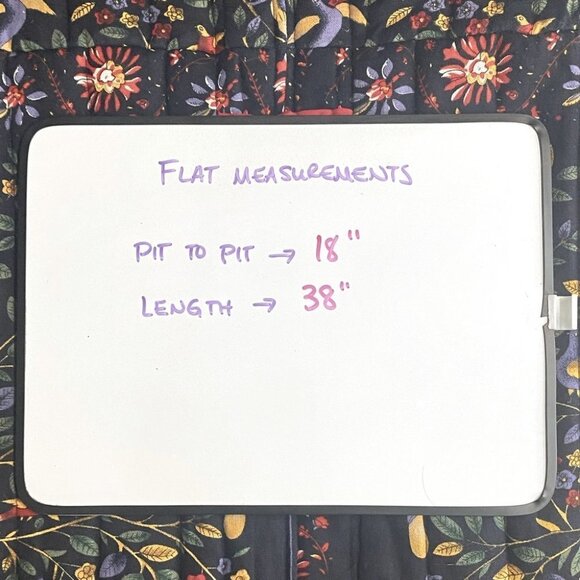 FLAT MEASUREMENTS
PIT TO PIT → 18"
LENGTH → 38"